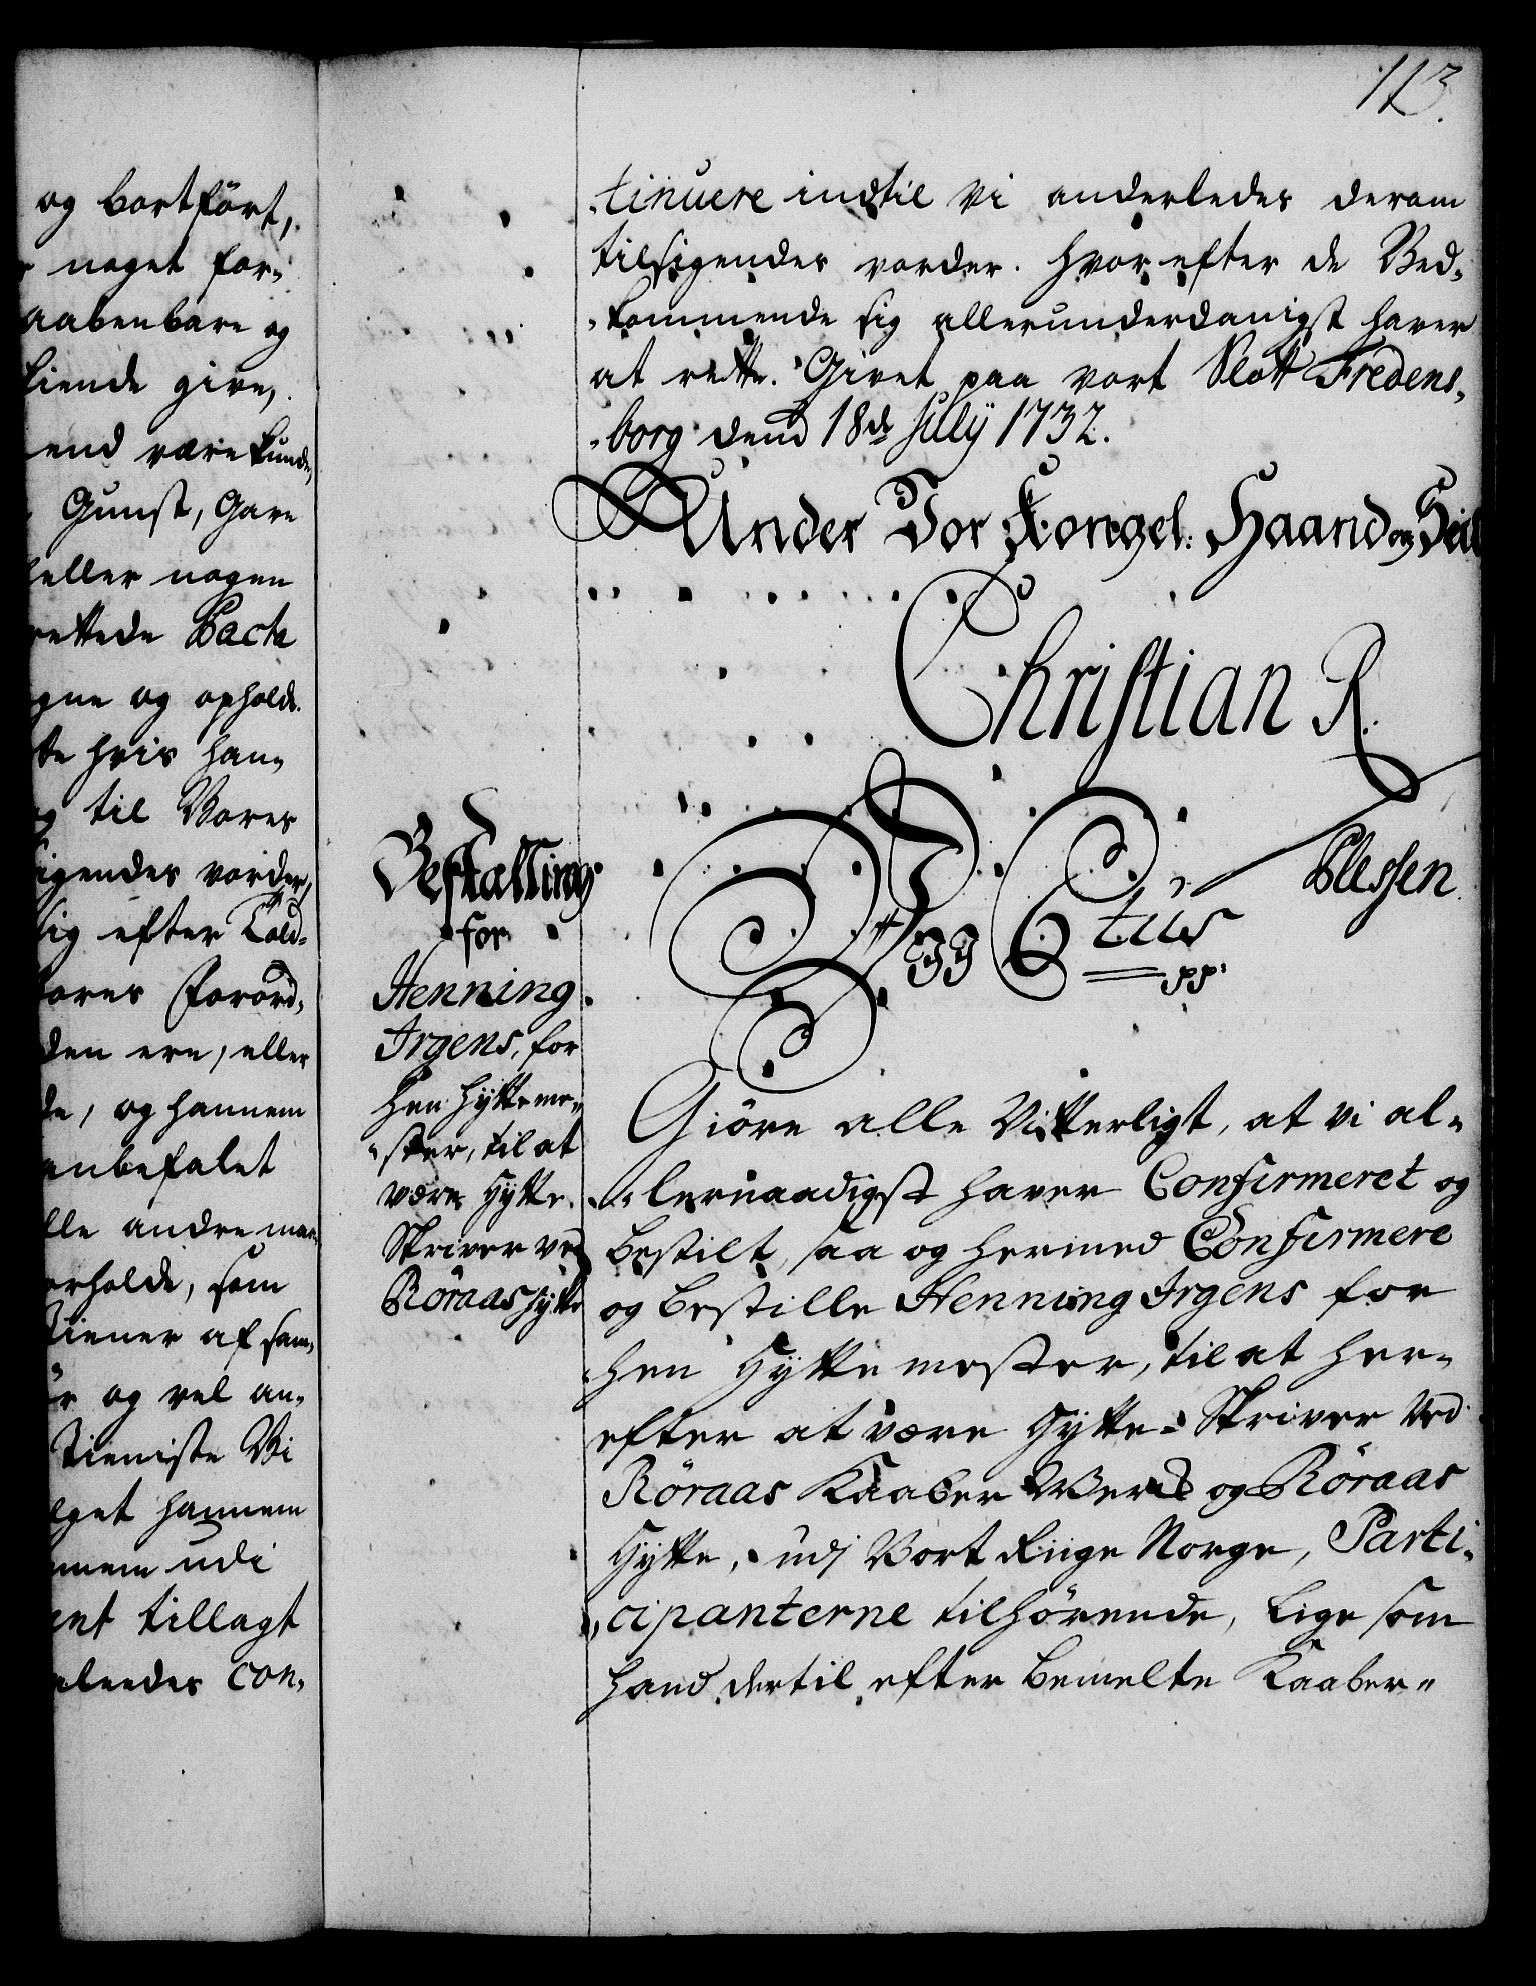 113.
og bortført,
noget for-
aabenbare og
tiende give,
end være kunde,
Gunst, Gave
heller nogen
rettede Pacta
egne og opholds.
te hvis han,
og til Vores
sigendes vorder,
sig efter Told-
Vores Forord,
den ere, eller
de, og hannem
anbefalet
lle andre maa
erholde, som
Tiener af sam,
ør og vel an,
Tieniste Vi
lget hannem
nnem udi
ent tillagt
aleedes con,
tinuere indtil vi anderledes derom
tilsigendes vorder. Hvorefter de Ved,
kommende sig allerunderdanigst haver
at rette. Givet paa vort Slott Fredens,
borg dend 18de July 1732.
Under Vor Kongel: Haand og Seil
Christian R.
Plessen.
Bestalling
for
Henning
Irgens, for
hen Hytteme,
ster, til at
være Hytte.
Skriver ved
Röraas Hytte
Wii C 6tus
pp.
Giöre alle Vitterligt, at vi al,
lernaadigst haver Confirmeret og
bestilt, saa og hermed Confirmere
og bestille Henning Irgens for
hen Hyttemester, til at her,
efter at være Hytte- Skriver ved
Röraas Kaaber Werck og Röraas
Hytte, udj Vort Riige Norge, Parti,
cipanterne tilhörende, lige som
hand dertil efter bemelte Kaaber,,